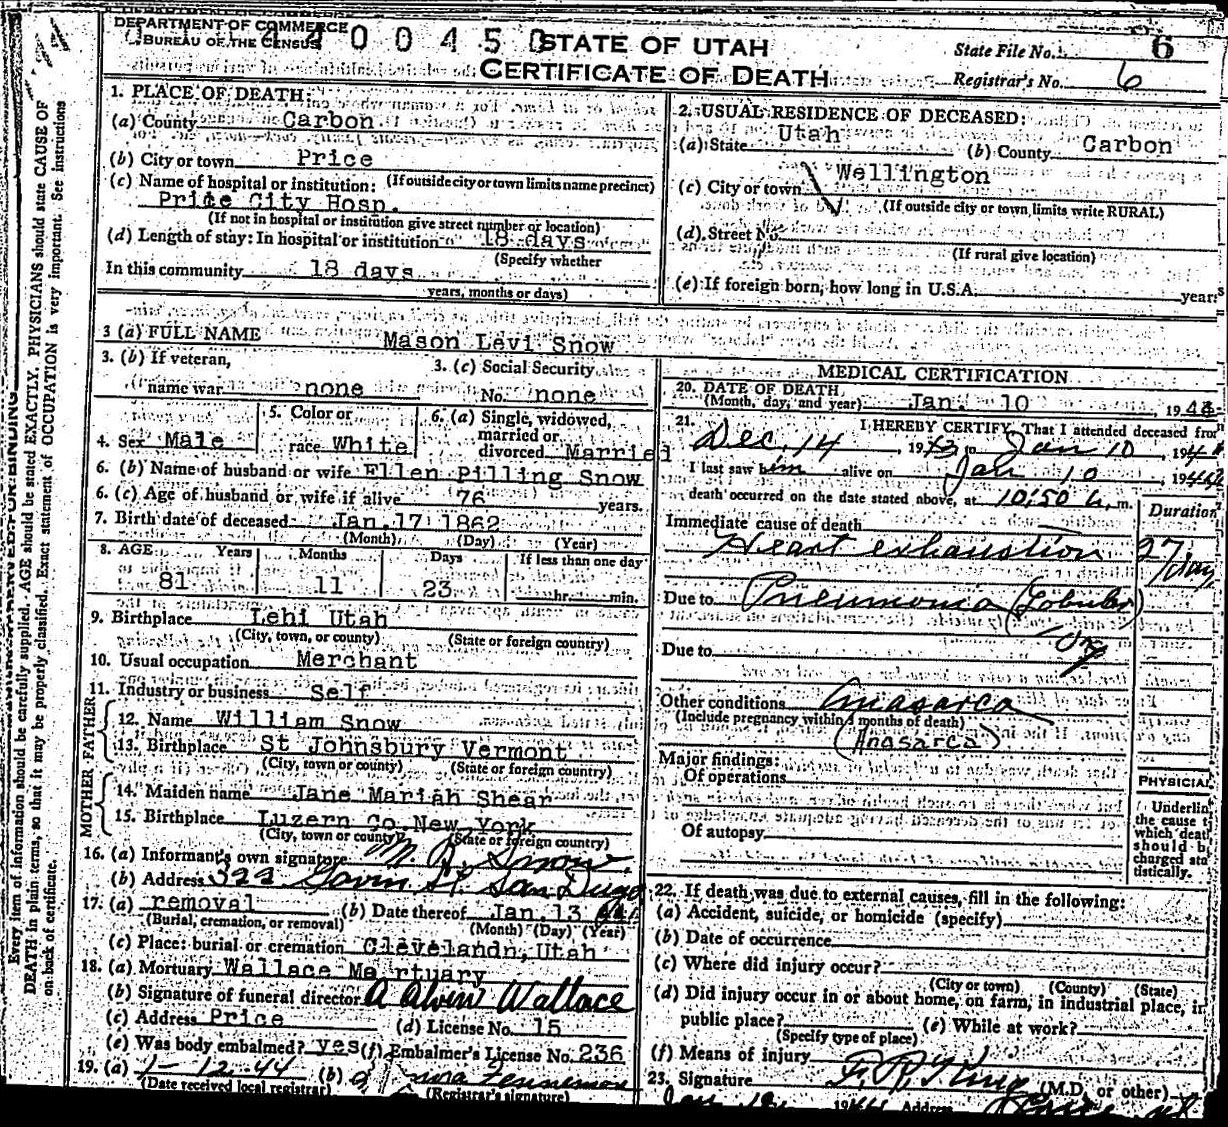 DEPARTMENT OF COMMERCE
BUREAU OF THE CENSUS
STATE OF UTAH
CERTIFICATE OF DEATH
State File No. 6
Registrar's No. 6
1. PLACE OF DEATH:
(a) County Carbon
(b) City or town Price
(c) Name of hospital or institution: (If outside city or town limits name precinct)
Price City Hosp.
(If not in hospital or institution give street number or location)
(d) Length of stay: In hospital or institution 18 days
(Specify whether
In this community 18 days
years, months or days)
2. USUAL RESIDENCE OF DECEASED:
(a) State Utah (b) County Carbon
(c) City or town Wellington
(If outside city or town limits write RURAL)
(d) Street No.
(If rural give location)
(e) If foreign born, how long in U.S.A. years
3 (a) FULL NAME Mason Levi Snow
3. (b) If veteran, name war none
3. (c) Social Security No. none
4. Sex Male
5. Color or race White
6. (a) Single, widowed, married or divorced Married
6. (b) Name of husband or wife Ellen Pilling Snow
6. (c) Age of husband or wife if alive 76 years.
7. Birth date of deceased Jan. 17 1862
(Month) (Day) (Year)
8. AGE Years Months Days If less than one day
81 11 23 hr. min.
9. Birthplace Lehi Utah
(City, town, or county) (State or foreign country)
10. Usual occupation Merchant
11. Industry or business Self
FATHER
12. Name William Snow
13. Birthplace St Johnsbury Vermont
(City, town or county) (State or foreign country)
MOTHER
14. Maiden name Jane Mariah Shear
15. Birthplace Luzern Co. New York
(City, town or county) (State or foreign country)
16. (a) Informant's own signature M. R. Snow.
(b) Address 322 San Diego
17. (a) removal (b) Date thereof Jan. 13
(Burial, cremation, or removal) (Month) (Day) (Year)
(c) Place: burial or cremation Clevelandn, Utah
18. (a) Mortuary Wallace Mortuary
(b) Signature of funeral director A Alvin Wallace
(c) Address Price (d) License No. 15
(e) Was body embalmed? yes (f) Embalmer's License No. 236
19. (a) 1-12-44 (b)
(Date received local registrar) (Registrar's signature)
MEDICAL CERTIFICATION
20. DATE OF DEATH
(Month, day, and year) Jan. 10, 1944
21. I HEREBY CERTIFY, That I attended deceased from
Dec. 14, 1943 to Jan 10, 194
I last saw him alive on Jan 10, 1944
death occurred on the date stated above, at 10:50 a. m.
Duration
Immediate cause of death
Heart exhaustion 27 days
Due to Pneumonia (Lobular)
Due to
Other conditions Anasarca
(Include pregnancy within 3 months of death)
(Anasarca)
Major findings:
Of operations
Of autopsy
PHYSICIAN
Underlin
the cause t
which deat
should b
charged sta
tistically.
22. If death was due to external causes, fill in the following:
(a) Accident, suicide, or homicide (specify)
(b) Date of occurrence
(c) Where did injury occur?
(City or town) (County) (State)
(d) Did injury occur in or about home, on farm, in industrial place, in
public place? (e) While at work?
(Specify type of place)
(f) Means of injury
23. Signature (M.D. or other)
Address
Every item of information should be carefully supplied. AGE should be stated EXACTLY. PHYSICIANS should state CAUSE OF
DEATH in plain terms, so that it may be properly classified. Exact statement of OCCUPATION is very important. See instructions
on back of certificate.